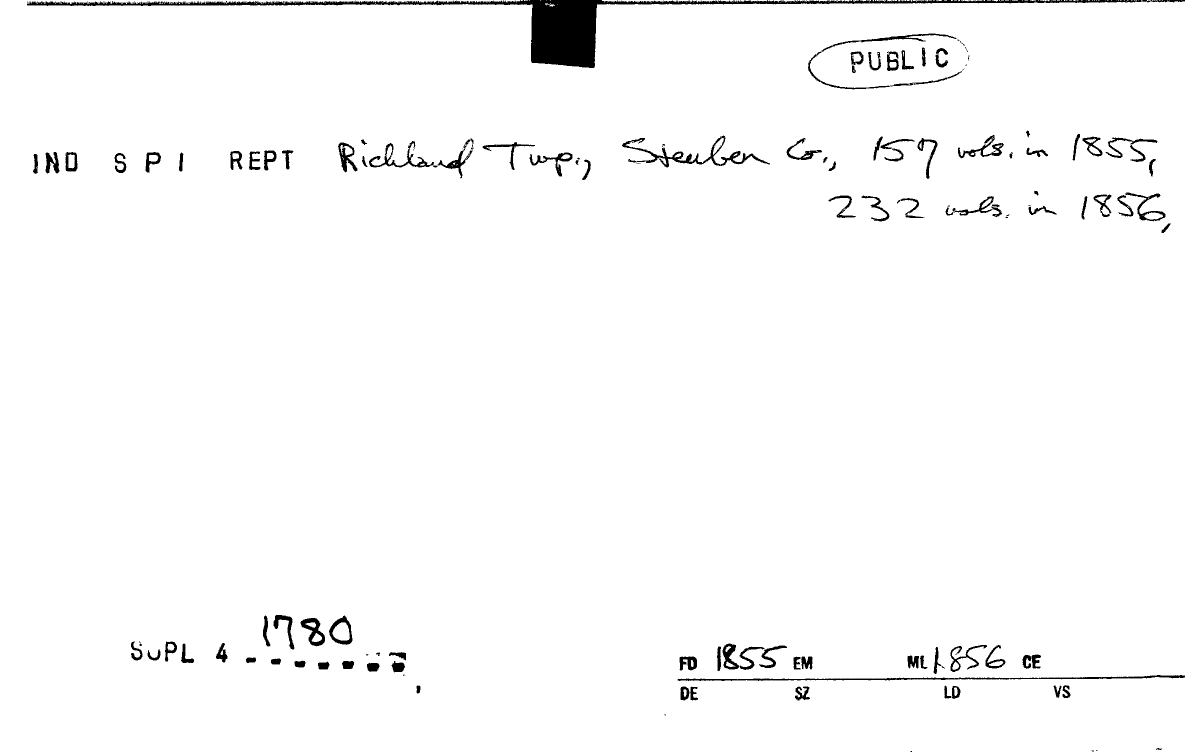 PUBLIC
IND S P I REPT Richland Twp., Steuben Co., 157 vols. in 1855,
232 vols. in 1856,
SUPL 4 1780
FD 1855 EM ML 1856 CE
DE SZ LD VS